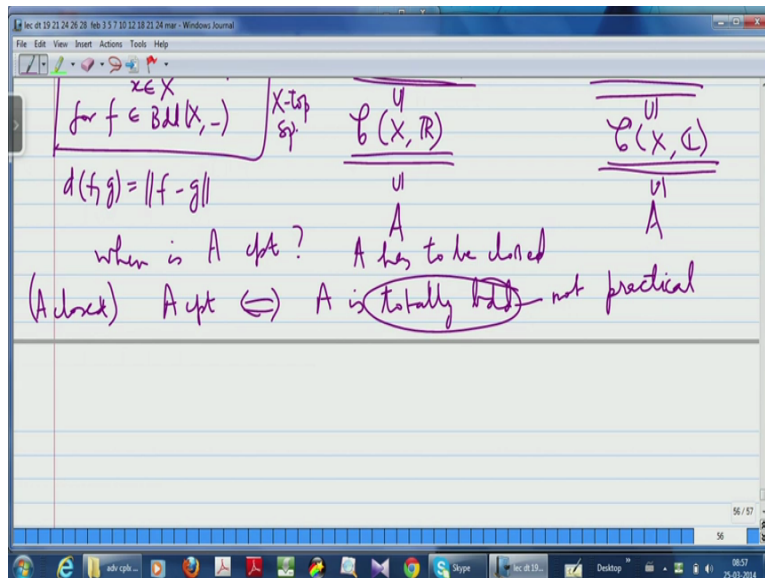 lec dt 19 21 24 26 28 feb 3 5 7 10 12 18 21 24 mar - Windows Journal
File Edit View Insert Actions Tools Help
x∈X
for f ∈ Bdd(X, -)
X-top
sp.
∪|
𝒞(X, ℝ)
∪|
𝒞(X, ℂ)
d(f, g) = ||f - g||
∪|
A
∪|
A
when is A cpt? A has to be closed
(A closed) A cpt ⟺ A is totally bdd - not practical
56 / 57
56
adv cplx ...
Skype
lec dt 19...
Desktop
08:57
25-03-2014